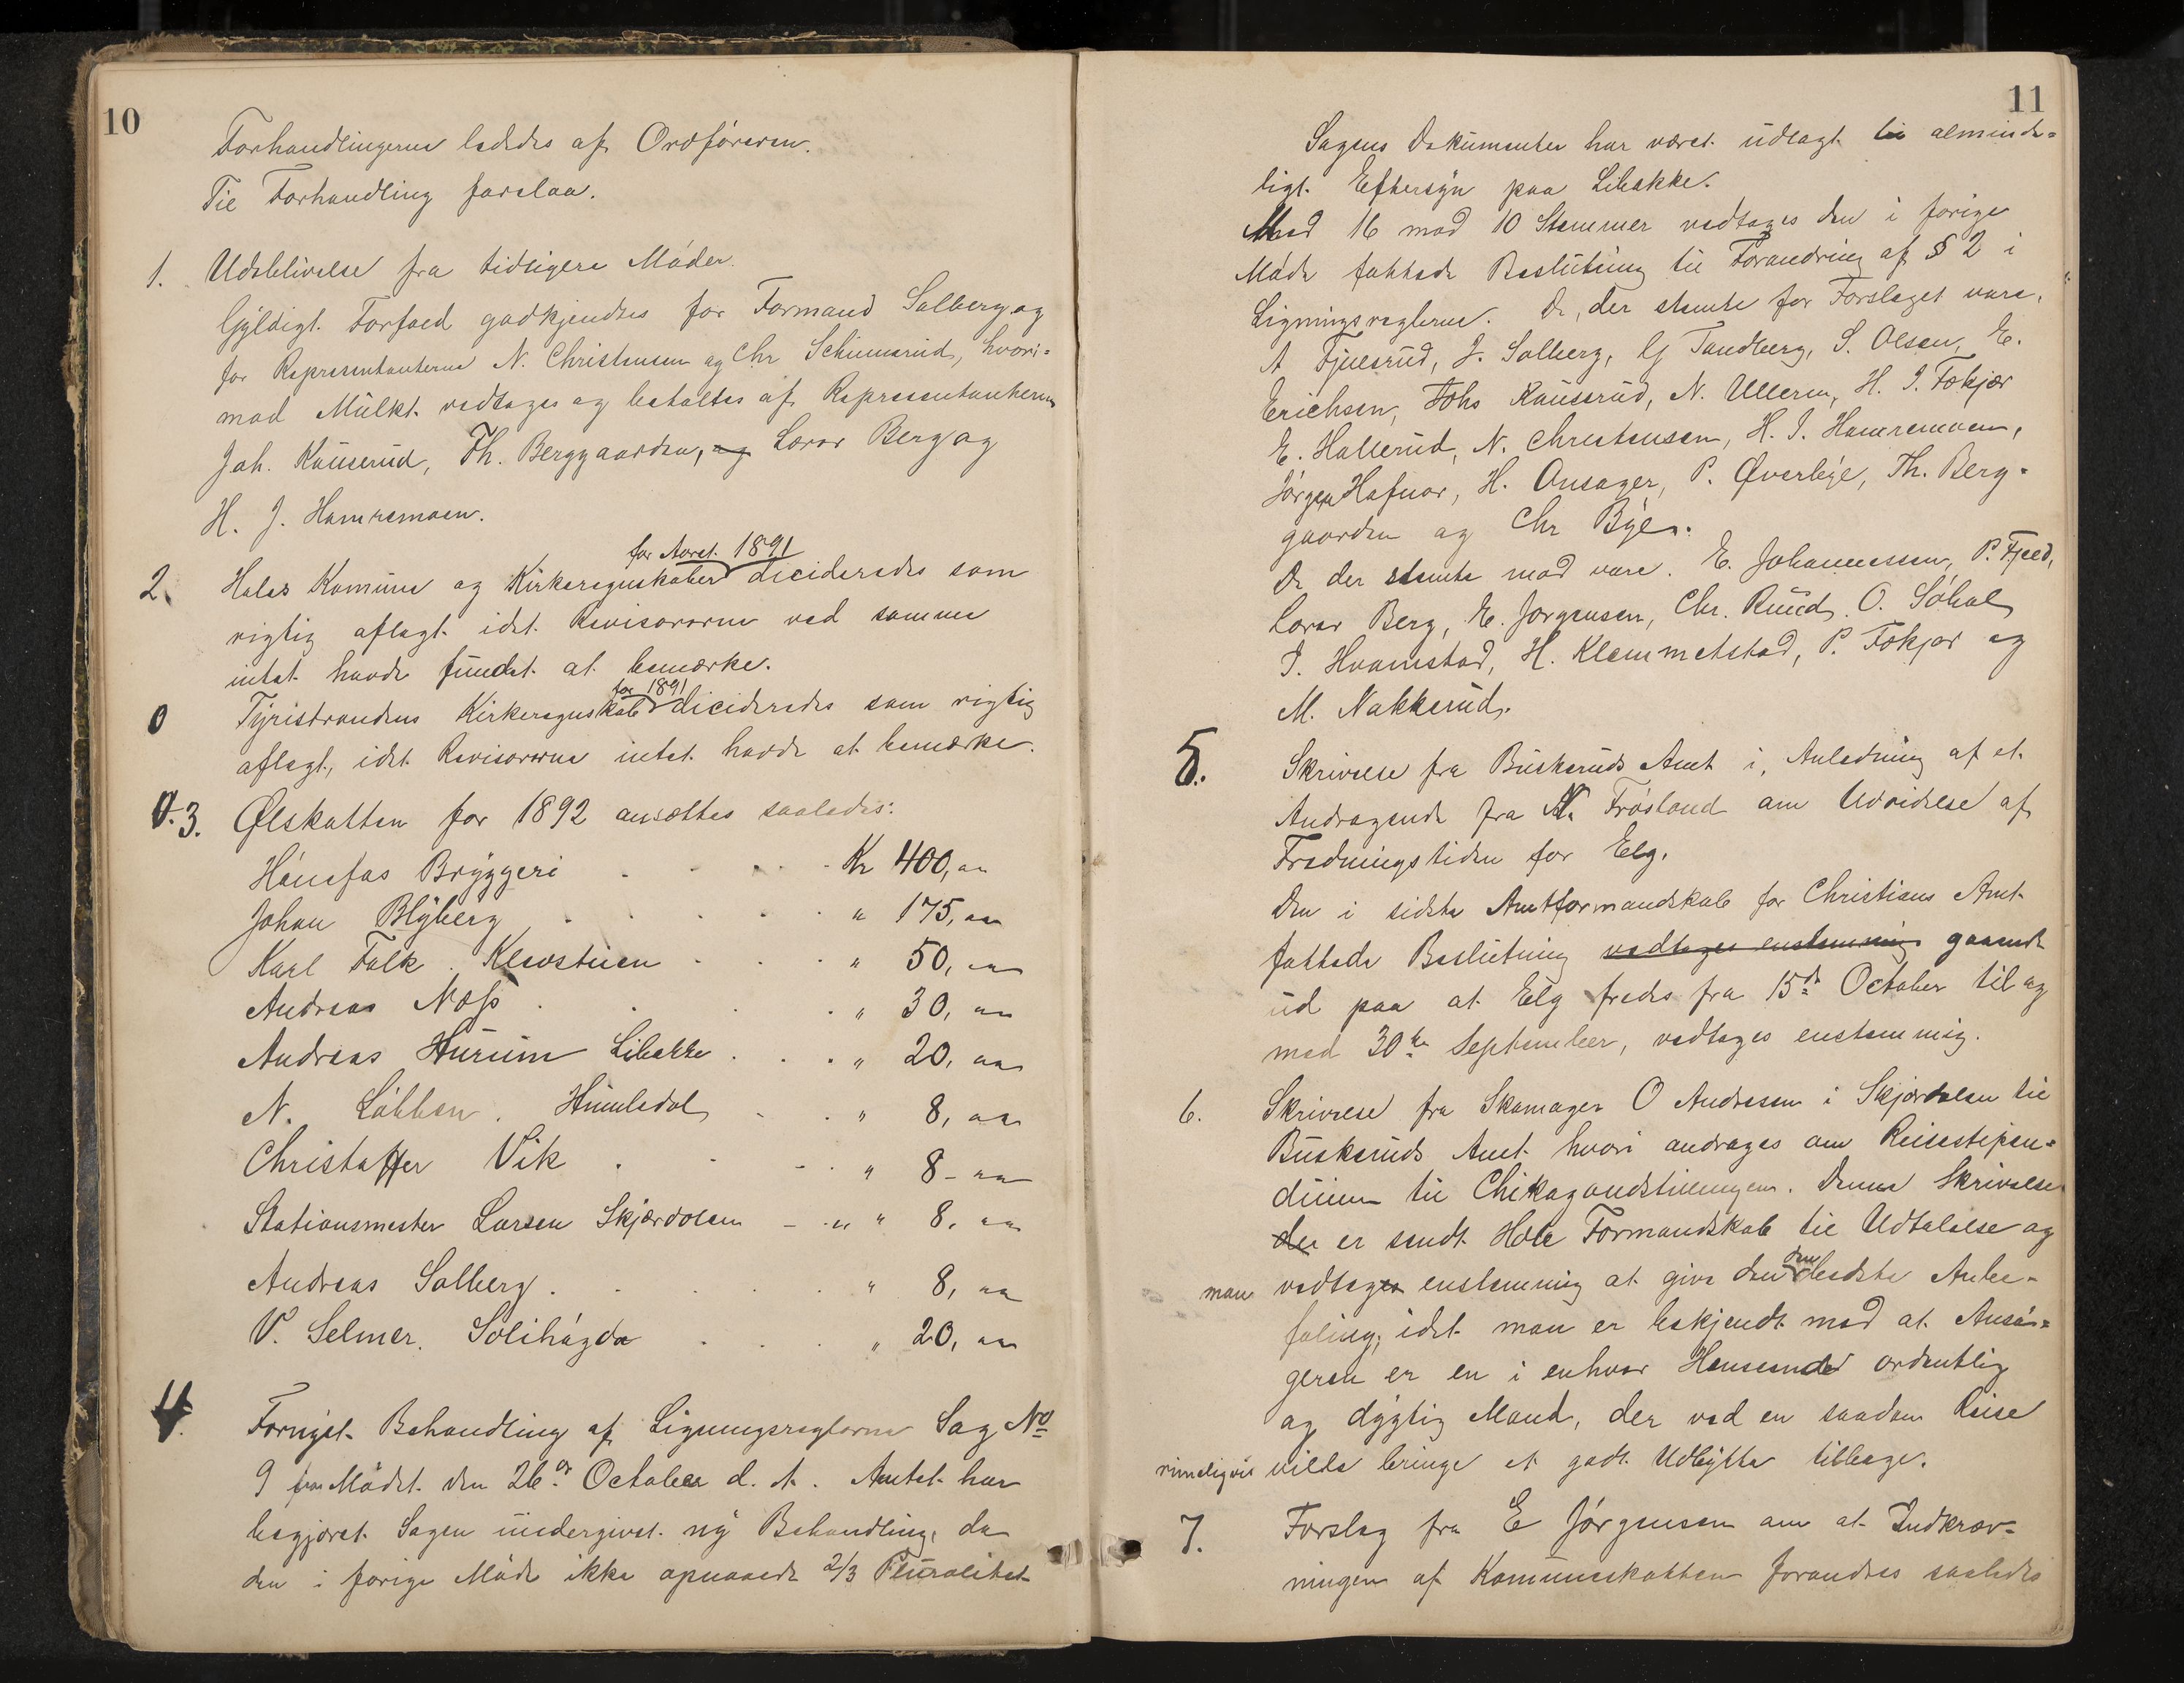 10
Forhandlingerne lededes af Ordføreren.
Til Forhandling forelaa.
1. Udeblivelse fra tidligere Møder.
Gyldigt Forfald godkjendtes for Formand Solberg og
for Repræsentanterne N. Christensen og Chr Schimerud, hvori=
mod Mulkt vedtages og betaltes af Repræsentanterne
Joh. Kauserud, Th. Berggaarden, og Lovar Berg og
H. J. Hamremoen.
for Aaret 1891
2. Holes Komune og Kirkeregnskaber deciderades som
rigtig aflagt idet Revisorerne ved samme
intet havde fundet at bemærke.
for 1891
0 Tyristrandens Kirkeregnskab deciderades som rigtig
aflagt, idet Revisorerne intet havde at bemærke.
3. Ølskatten for 1892 ansættes saaledes:
Hønefos Bryggeri . . . . Kr 400,00
Johan Blyberg . . . . . " 175,00
Karl Falk. Klevstuen . . . " 50,00
Andreas Næss . . . . " 30,00
Andreas Hurum Libakke . . . " 20,00
N. Løkken. Humledal . . " 8,00
Christoffer Vik . . . " 8-00
Stationsmester Larsen Skjærdalen - " " 8,00
Andreas Solberg . . . . . " 8,00
V. Selmer. Solihøgda . . . " 20,00
4. Fornyet Behandling af Ligningsreglerne Sag No
9 fra Mødet den 26de October d. A. Amtet har
begjæret Sagen undergivet ny Behandling, da
den i forige Møde ikke opnaaede 2/3 Pluralitet
11
Sagens Dokumenter har været udlagt til alminde=
ligt Eftersyn paa Libakke.
Med 16 mod 10 Stemmer vedtages den i forige
Møde fattede Beslutning til Forandring af § 2 i
Ligningsreglerne. De, der stemte for Forslaget vare,
A Fjulsrud, J. Solberg, G Tandberg, S. Olsen, E.
Erichsen, Johs Kauserud, N. Ullern, H. J. Fekjær
E. Hallerud, N. Christensen, H. J. Hamremoen,
Jørgen Hafnor, H. Onsager, P. Øverbye, Th. Berg=
gaarden og Chr Bye.
De der stemte mod vare. E. Johannessen, P. Fjeld,
Lovar Berg, E. Jørgensen, Chr. Ruud, O. Søhol
J. Hvamstad, H. Klemmetstad, P. Fekjær og
M. Nakkerud.
5. Skrivelse fra Buskeruds Amt i, Anledning af et
Andragende fra N. Frøsland om Udvidelse af
Fredningstiden for Elg.
Den i sidste Amtformandskab for Christians Amt
fattede Beslutning vedtages enstemmig gaaende
ud paa at Elg fredes fra 15de October til og
med 30te September, vedtages enstemmig.
6. Skrivelse fra Skomager O Andresen i Skjærdalen til
Buskeruds Amt hvori andrages om Reisestipen=
dium til Chikagoudstillingen. Denne Skrivelse
der er sendt Hole Formandskab til Udtalelse og
man vedtages enstemmig at give den den bedste Anbe=
faling, idet man er bekjendt med at Ansø=
geren er en i enhver Henseende ordentlig
og dygtig Mand, der ved en saadan Reise
rimeligvis vilde bringe et godt Udbytte tilbage.
7. Forslag fra E Jørgensen om at Indkræv=
ningen af Komuneskatten forandres saaledes